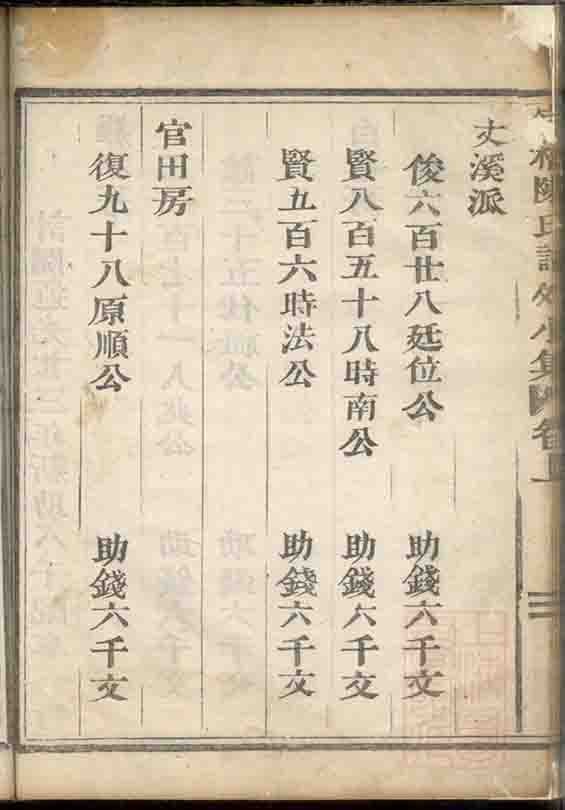 陳氏
丈溪派
俊六百廿八廷位公 助錢六千文
賢八百五十八時南公 助錢六千文
賢五百六時法公 助錢六千文
官田房
復九十八原順公 助錢六千文